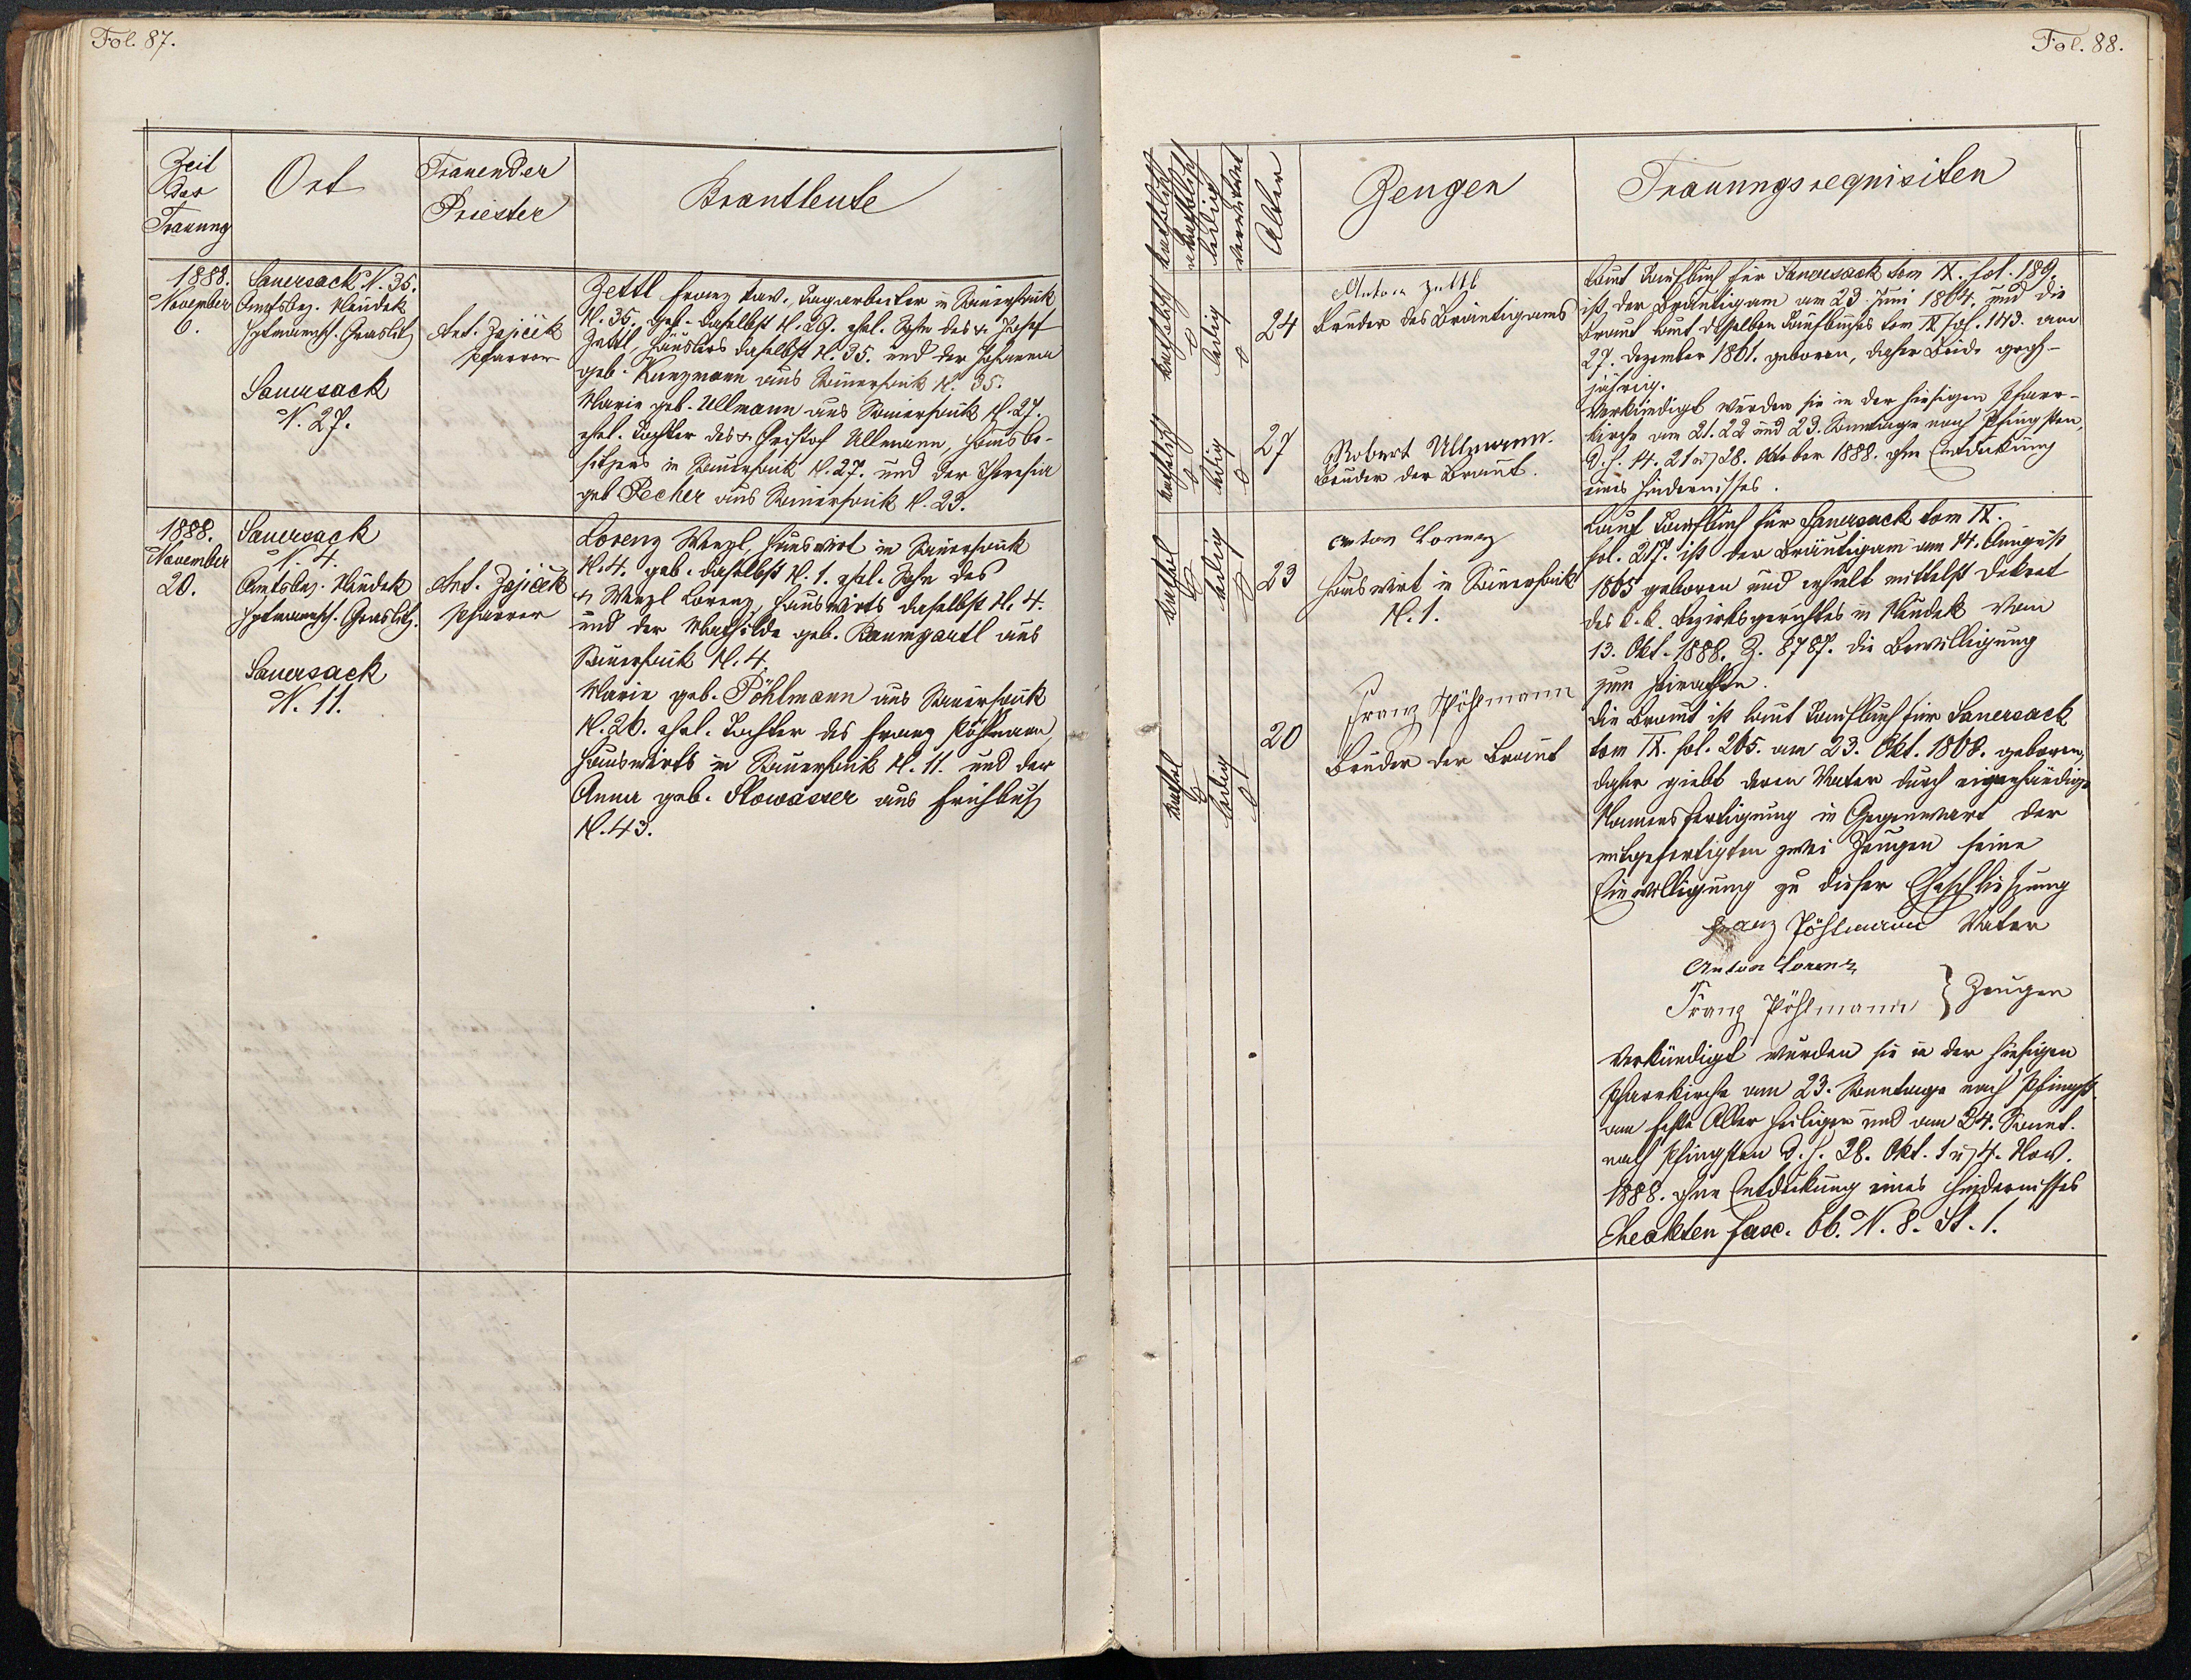 Fol. 87.
Zeit
der
Trauung
Ort
Trauender
Priester
Brautleute
1888.
November
6.
Sauersack N. 35.
Amtsbez. Neudek
Hptmannsch. Graslitz
Sauersack
N. 27.
Ant. Zajiček
Pfarrer
Zettl Franz Xav. Tagarbeiter in Sauersack
N. 35. geb. daselbst N. 29. ehel. Sohn des † Josef
Zettl Häuslers daselbst N. 35. und der Johanna
geb. Kunzmann aus Sauersack N. 35.
Marie geb. Ullmann aus Sauersack N. 27.
ehel. Tochter des † Christof Ullmann, Hausbe-
sitzers in Sauersack N. 27. und der Theresia
geb Pecher aus Sauersack N. 23.
1888.
November
20.
Sauersack
N. 4.
Amtsbez. Neudek
Hptmannsch. Graslitz.
Sauersack
N. 11.
Ant. Zajiček
Pfarrer
Lorenz Wenzl, Hauswirt in Sauersack
N. 4. geb. daselbst N. 1. ehel. Sohn des
† Wenzl Lorenz, Hauswirts daselbst N. 4.
und der Mathilde geb. Baumgartl aus
Sauersack N. 4.
Marie geb. Pöhlmann aus Sauersack
N. 26. ehel. Tochter des Franz Pöhlmann,
Hauswirts in Sauersack N. 11. und der
Anna geb. Slowasser aus Frühbuß
N. 43.
Fol. 88.
katholisch
unkatholisch
ledig
verwitwet
Alter
Zeugen
Trauungsrequisiten
katholisch
ledig
24
Anton Zettl
Bruder des Bräutigams
katholisch
ledig
27
Robert Ullmann.
Bruder der Braut.
Laut Taufbuch für Sauersack tom IX. fol. 189.
ist der Bräutigam am 23. Juni 1864. und die
Braut laut desselben Taufbuches tom IX fol. 143. am
27. Dezember 1861. geboren, daher Beide groß-
jährig.
Verkündigt wurden sie in der hiesigen Pfarr-
kirche am 21. 22 und 23. Sonntage nach Pfingsten,
d. h. 14. 21 u. 28. Oktober 1888. ohne Entdeckung
eines Hindernisses.
kathol
ledig
23
Anton Lorenz
Hauswirt in Sauersack
N. 1.
kathol
ledig
20
Franz Pöhlmann
Bruder der Braut
Laut Taufbuch für Sauersack tom IX.
fol. 217. ist der Bräutigam am 14. August
1865 geboren und erhielt mittelst Dekret
des k. k. Bezirksgerichtes in Neudek vom
13. Okt. 1888. Z. 8787. die Bewilligung
zum Heirathen.
Die Braut ist laut Taufbuch für Sauersack
tom IX. fol. 265. am 23. Okt. 1868. geboren,
daher giebt deren Vater durch eigenhändige
Namensfertigung in Gegenwart der
mitgefertigten zwei Zeugen seine
Einwilligung zu dieser Eheschließung
Franz Pöhlmann Vater
Anton Lorenz
Franz Pöhlmann } Zeugen
Verkündigt wurden sie in der hiesigen
Pfarrkirche am 23. Sonntage nach Pfingst.
am Feste Aller Heiligen und am 24. Sonnt.
nach Pfingsten d. h. 28. Okt. 1 u. 4. Nov.
1888. ohne Entdeckung eines Hindernisses
Eheakten fasc. 66. N. 8. St. 1.